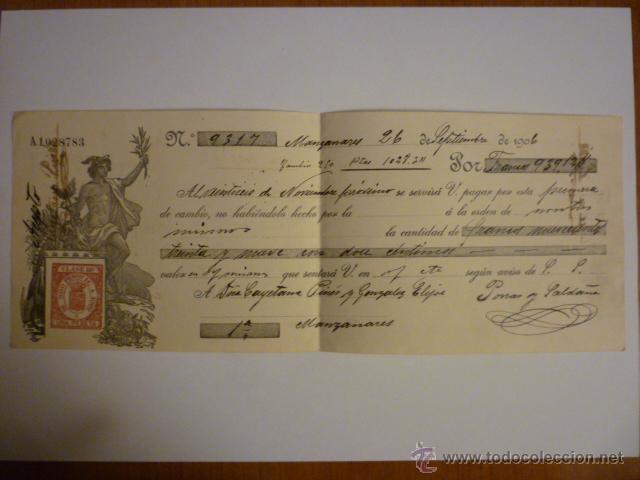 A1028783
N.º 9317 Manzanares 26 de Septiembre de 1906
Cambio Ptas 1029.20 Por Francos 939,12
Al veintiseis de Noviembre próximo se servirá V. pagar por esta primera
de cambio, no habiéndolo hecho por la á la orden de nosotros
mismos la cantidad de francos novecientos
treinta y nueve con doce céntimos
valor en que sentará V. en cta según aviso de S. S.
A Dña Cayetana González Elipe Porras y Saldaña
1ª Manzanares
CLASE 10ª
UNA PESETA
www.todocoleccion.net